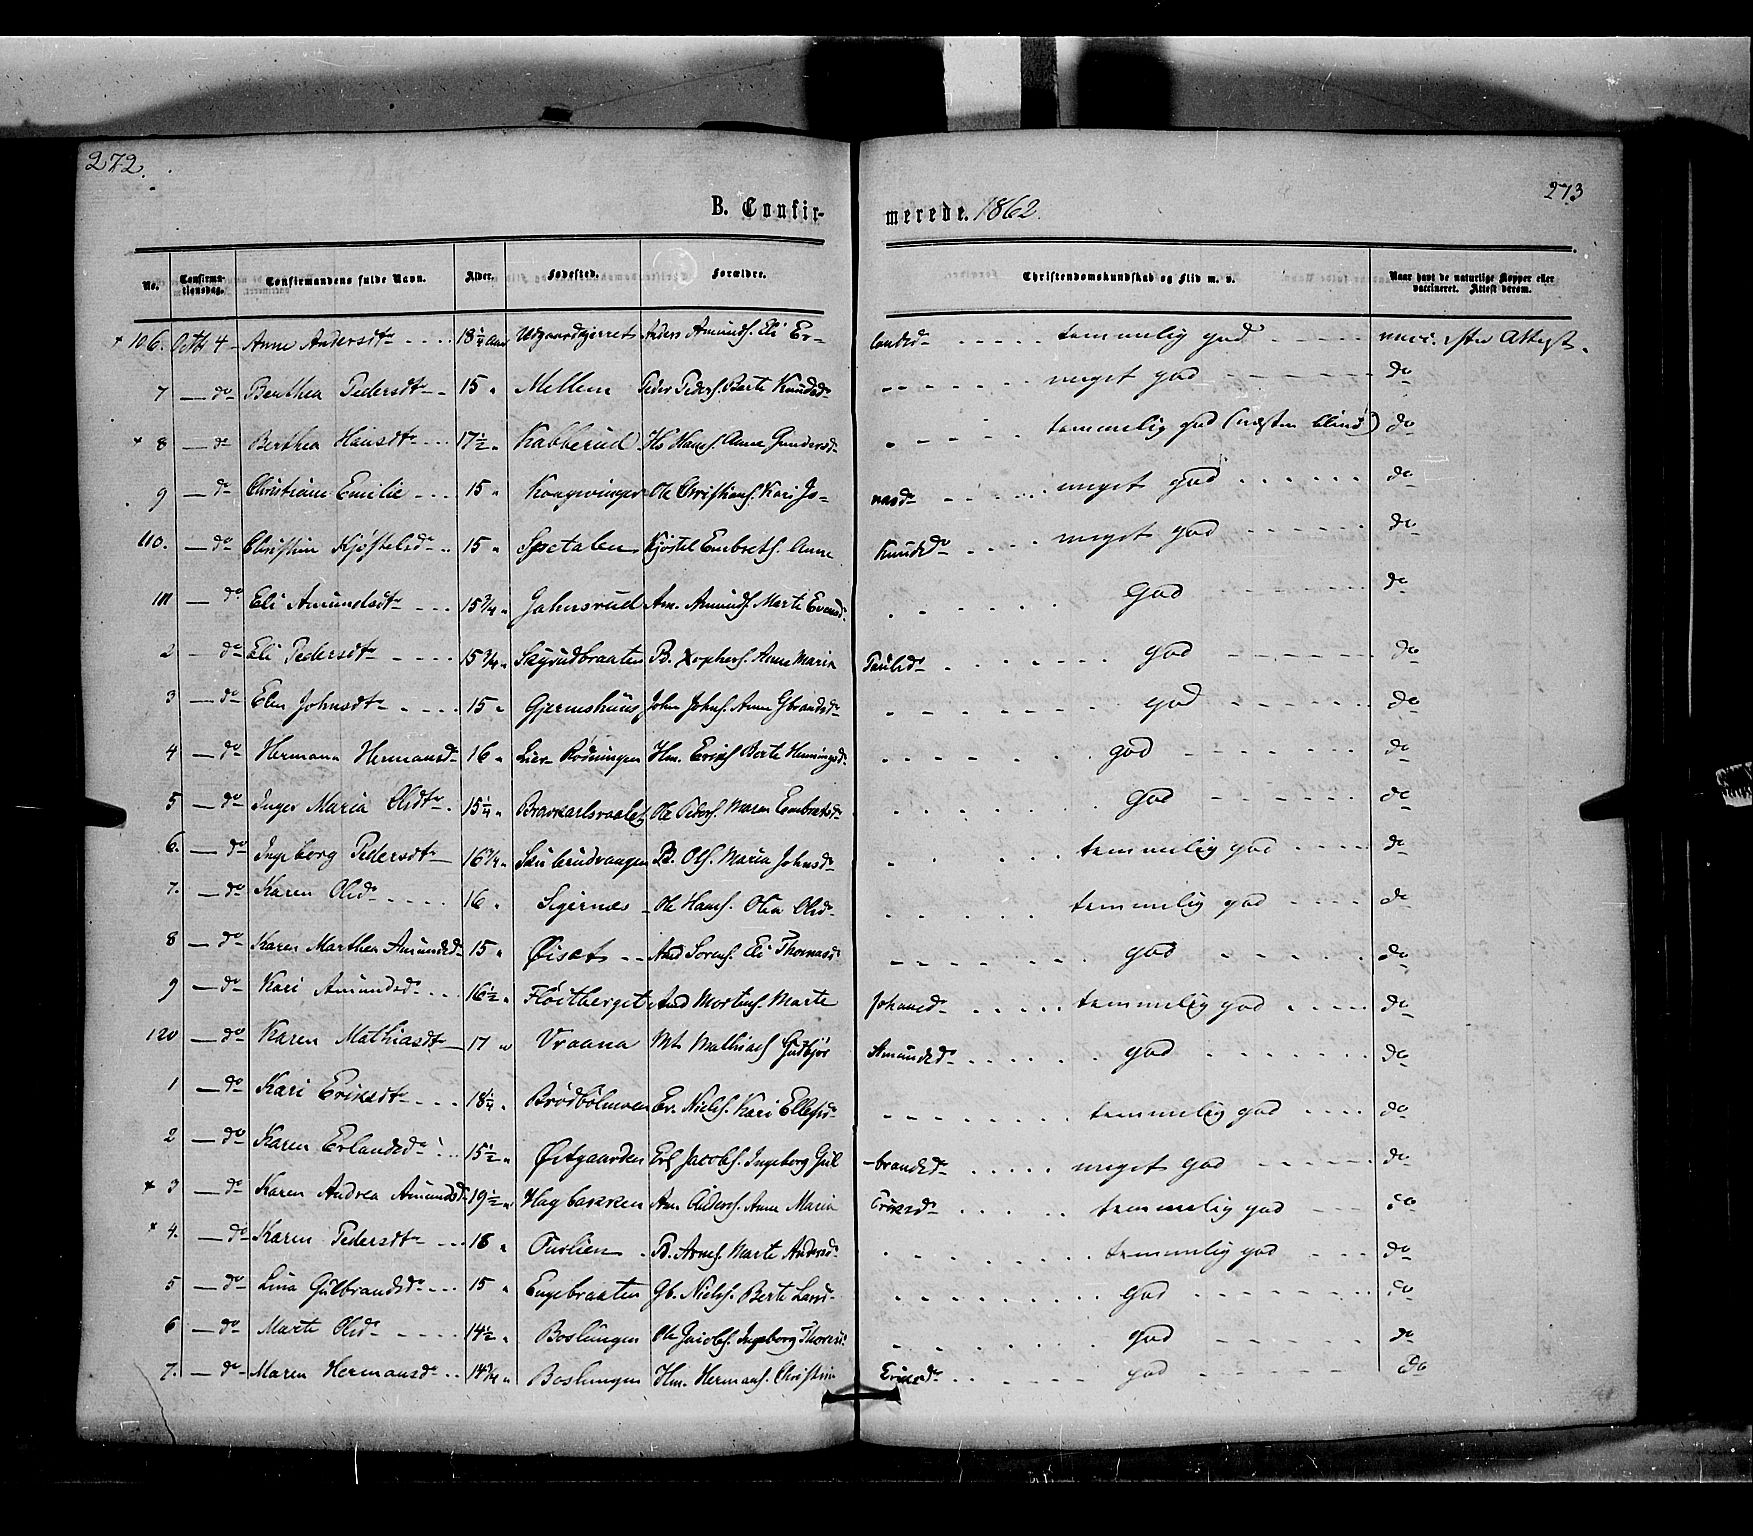 272.
273
B. Confir-
merede. 1862.
No. Confirma-tionsdag. Confirmandens fulde Navn. Alder. Fødested. Forældre. Christendomskundskab og Flid m. v. Naar havt de naturlige Kopper eller vaccineret. Attest derom.
+ 106. Octbr 4 - Anne Andersdtr 18 1/4 Aar Udgaardsjerret Anders Amunds. Eli Er-landsdr temmelig god vacc. efter Attest.
7 — do Benthea Pedersdtr 15 " Mellem Peder Peders. Berte Knudsdr meget god do
+ 8 — do Berthea Hansdtr 17 1/2 " Kabberud Hs Hans. Anne Gundersdr temmelig god (næsten blind) do
9 — do Christiane Emilie 15 " Kongsvinger Ole Christians. Kari Jo-nasdr meget god do
110. — do Christine Kjøstelsdr 15 " Spetalen Kjøstel Embrets. Anne Knudsdr meget god do
111 — do Eli Amundsdtr 15 3/4 " Jahnsrud Am. Amunds. Marte Evensdr God do
2 — do Eli Pedersdtr 15 3/4 " Skyrudbraaten P. Xophers. Anne Maria Paulsdr god do
3 — do Elen Johnsdtr 15 " Gjermshuus John Johns. Anne Gbrandsdr god do
4 — do Hermana Hermansdr 16 " Lier Rødningen Hm. Eriks. Berte Henningsdr god do
5 — do Inger Maria Olsdtr 15 1/4 " Ole Peders. Maren Embretsdr God do
6. — do Ingeborg Pedersdtr 16 3/4 " P. Ols. Maria Johnsdr temmelig god do
7. — do Karen Olsdr 16 " Sigernæs Ole Hans. Olea Olsdr temmelig god do
8 — do Karen Marthea Amundsdr 15 " Øiset Amd Sørens. Eli Thomasdr god do
9 — do Kari Amundsdr 16 1/2 " Fløitberget Amd Mortens. Marte Johansdr temmelig god do
120 — do Karen Mathiasdtr 17 " Vraana Mt. Mathias. Gudbjør Amundsdr god do
1 — do Kari Eriksdtr 18 1/4 " Brødbølmoen Er. Niels. Kari Ellefsdr temmelig god do
2 — do Karen Erlandsdr 15 1/2 " Østgaarden Erl. Jacobs. Ingeborg Gul-brandsdr meget god do
+ 3 — do Karen Andrea Amundsdr 19 1/2 " Hagbakken Am. Anders. Anne Maria Eriksdr temmelig god do
+ 4. — do Karen Pedersdtr 18 " P. Arnes. Marte Andersdr temmelig god do
5 — do Lina Gulbrandsdr 15 " Engebraaten Gb. Niels. Berte Larsdr God do
6 — do Marte Olsdr 14 1/2 " Boslungen Ole Jacobs. Ingeborg Thoresdr God do
7. — do Maren Hermansdr 14 3/4 " Boslungen Hm. Hermans. Christine Ericsdr god do